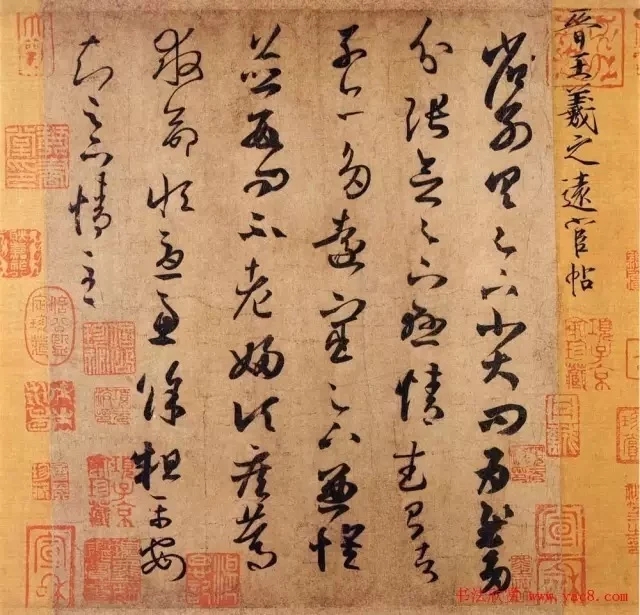 晉王羲之遠宦帖
省別具足下小大問為慰多
分張念足下懸情武昌諸
子亦多遠宦足下兼懷
並數問不老婦頃疾篤
救命恒憂慮餘粗平安
知足下情至
項子京家珍藏
宣和
书法欣赏 www.yac8.com